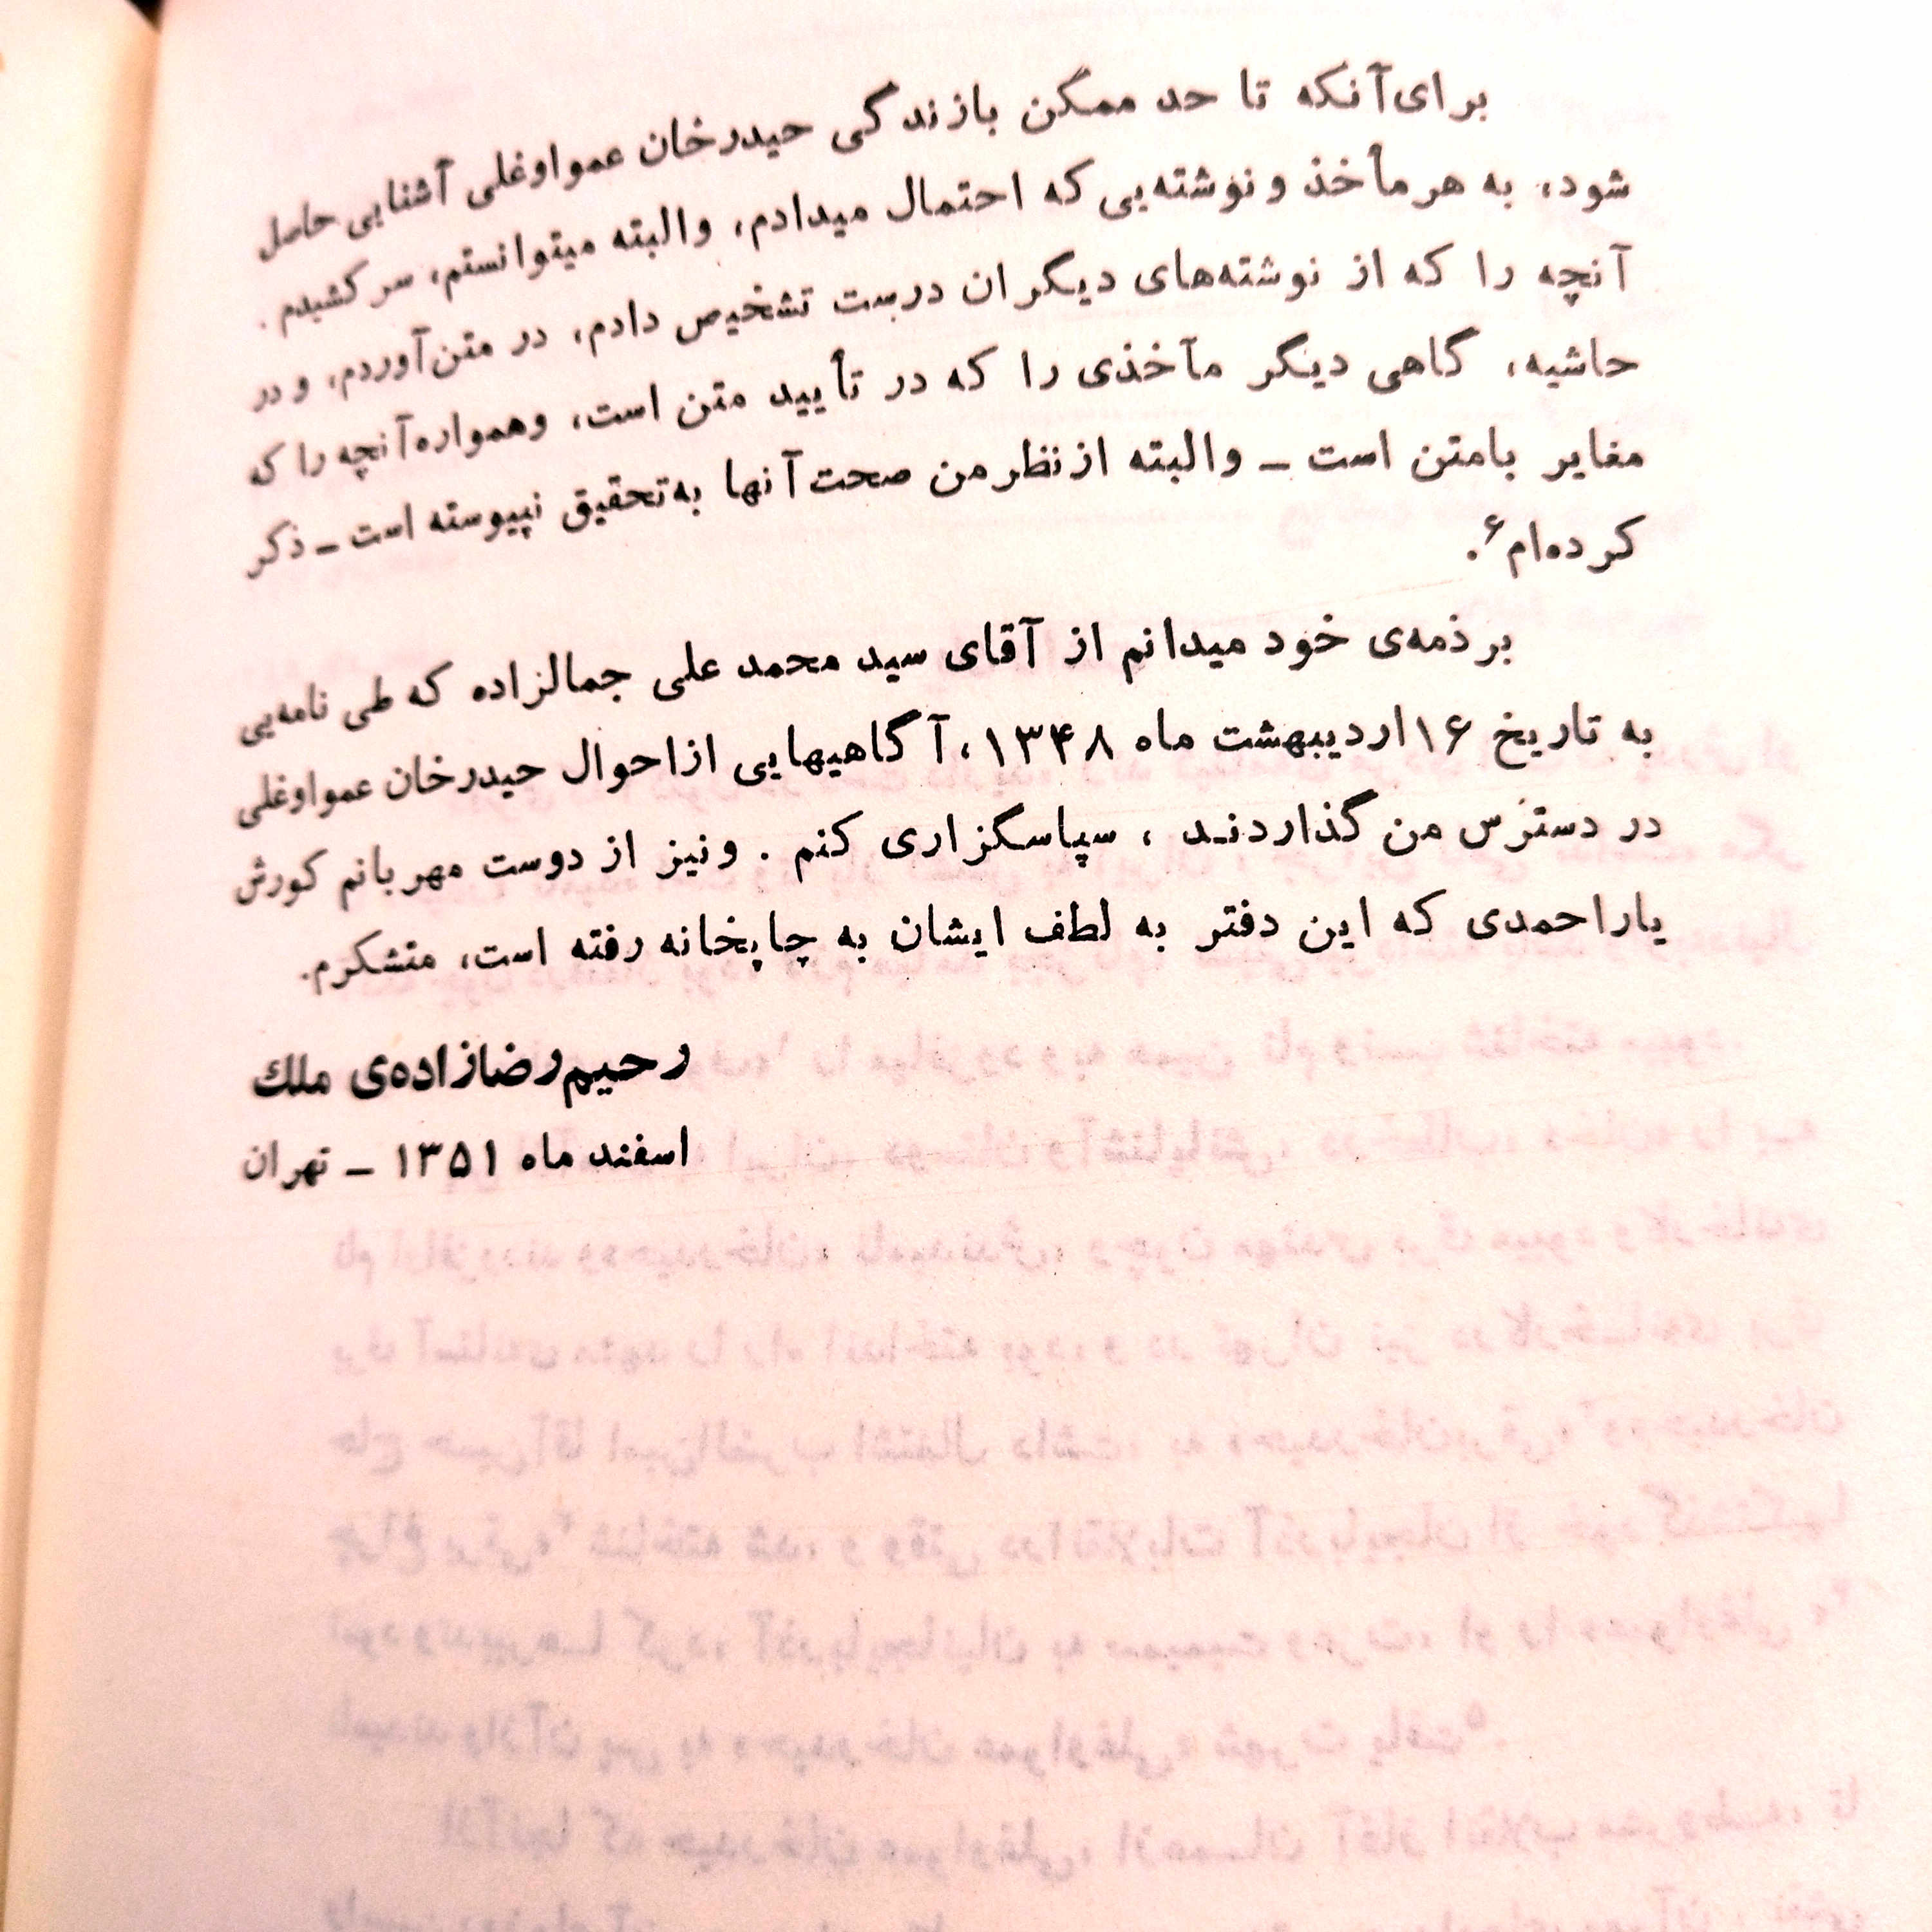 برای‌آنکه تا حد ممکن بازندگی حیدرخان عمواوغلی آشنایی حاصل
شود، به هر مأخذ و نوشته‌یی که احتمال میدادم، والبته میتوانستم، سرکشیدم .
آنچه را که از نوشته‌های دیگران درست تشخیص دادم، در متن‌آوردم، و در
حاشیه، گاهی دیگر مآخذی را که در تأیید متن است، وهمواره‌آنچه را که
مغایر بامتن است ــ والبته ازنظر من صحت‌آنها به‌تحقیق نپیوسته است ــ ذکر
کرده‌ام۶.
بر ذمه‌ی خود میدانم از آقای سید محمد علی جمالزاده که طی نامه‌یی
به تاریخ ۱۶اردیبهشت ماه ۱۳۴۸، آگاهیهایی ازاحوال حیدرخان عمواوغلی
در دسترس من گذاردنـد ، سپاسگزاری کنم . ونیز از دوست مهربانم کورش
یاراحمدی که این دفتر به لطف ایشان به چاپخانه رفته است، متشکرم.
رحیم‌رضازاده‌ی ملك
اسفند ماه ۱۳۵۱ ــ تهران